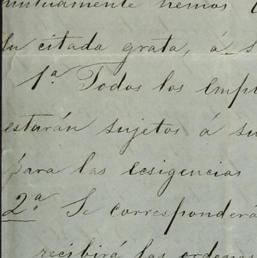 mutuamente hemos
su citada grata, á
1ª Todos los Emp
estarán sujetos á su
para las ecsigencias
2ª Se corresponderá
recibirá las ordenes